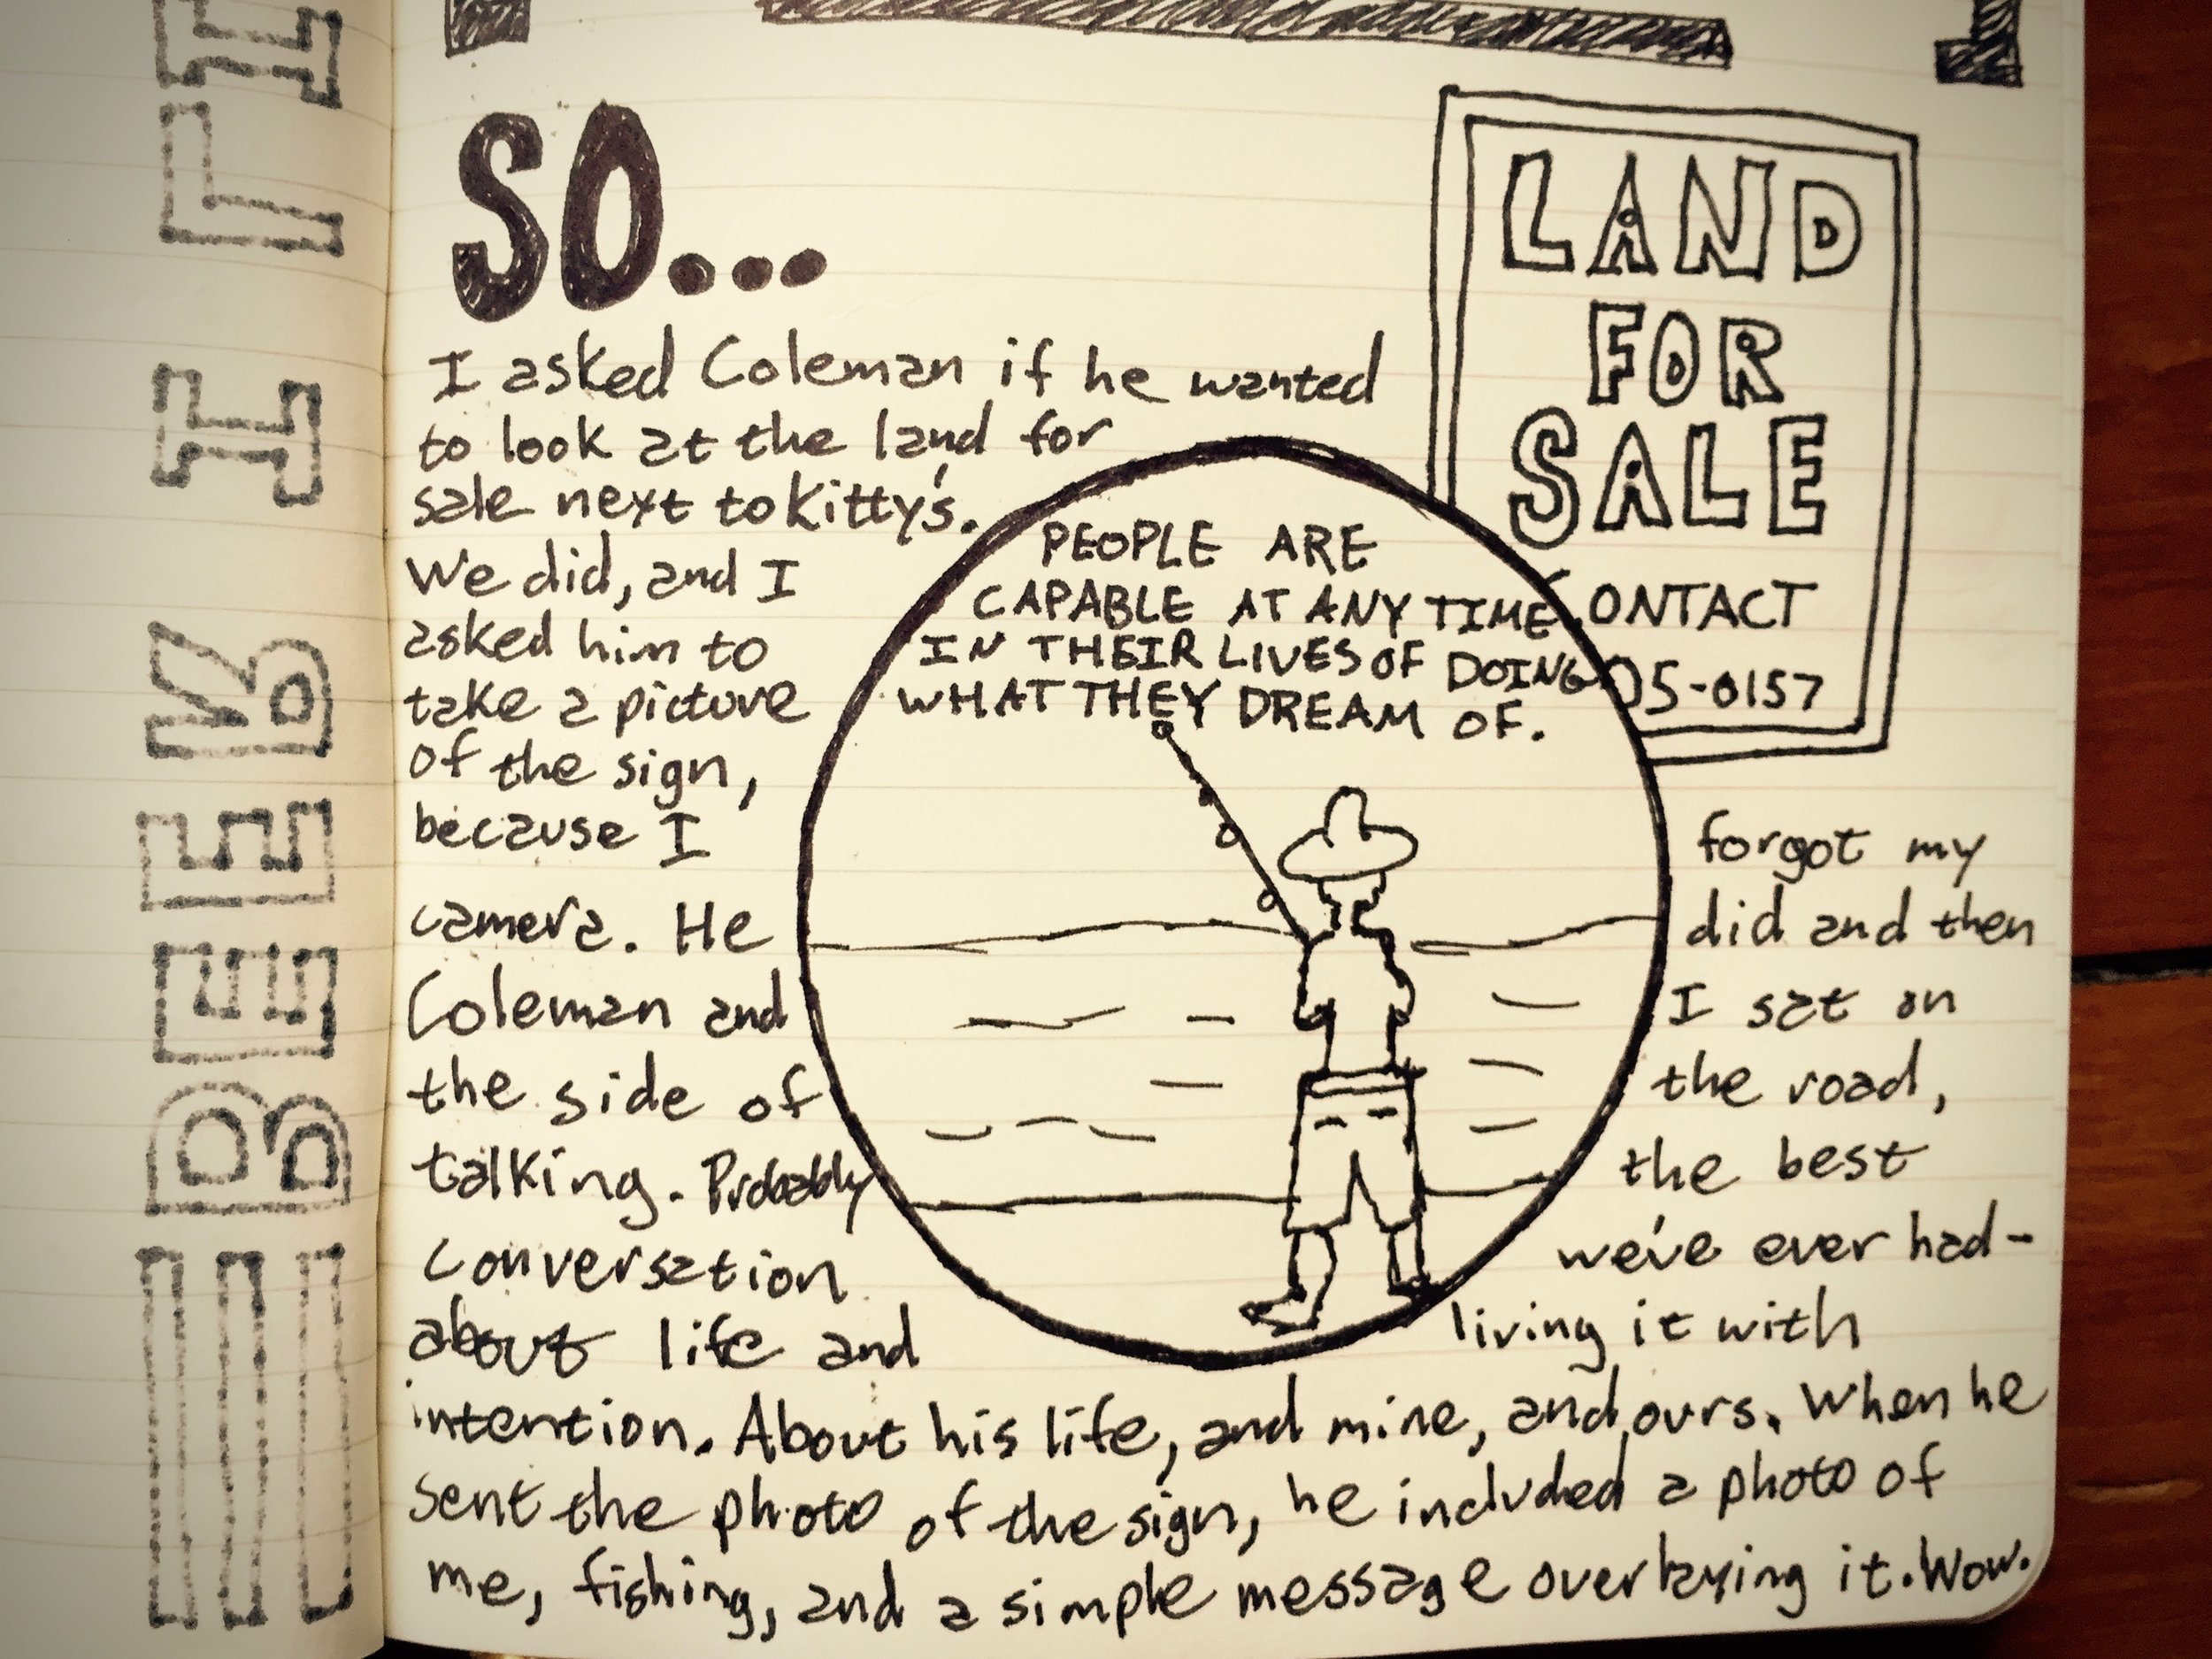 SO...
I asked Coleman if he wanted
to look at the land for
sale next to Kitty's.
We did, and I
asked him to
take a picture
of the sign,
because I forgot my
camera. He did and then
Coleman and I sat on
the side of the road,
talking. Probably the best
conversation we've ever had-
about life and living it with
intention. About his life, and mine, and ours. When he
sent the photo of the sign, he included a photo of
me, fishing, and a simple message overlaying it. Wow.
PEOPLE ARE
CAPABLE AT ANY TIME
IN THEIR LIVES OF DOING
WHAT THEY DREAM OF.
LAND
FOR
SALE
CONTACT
05-0157